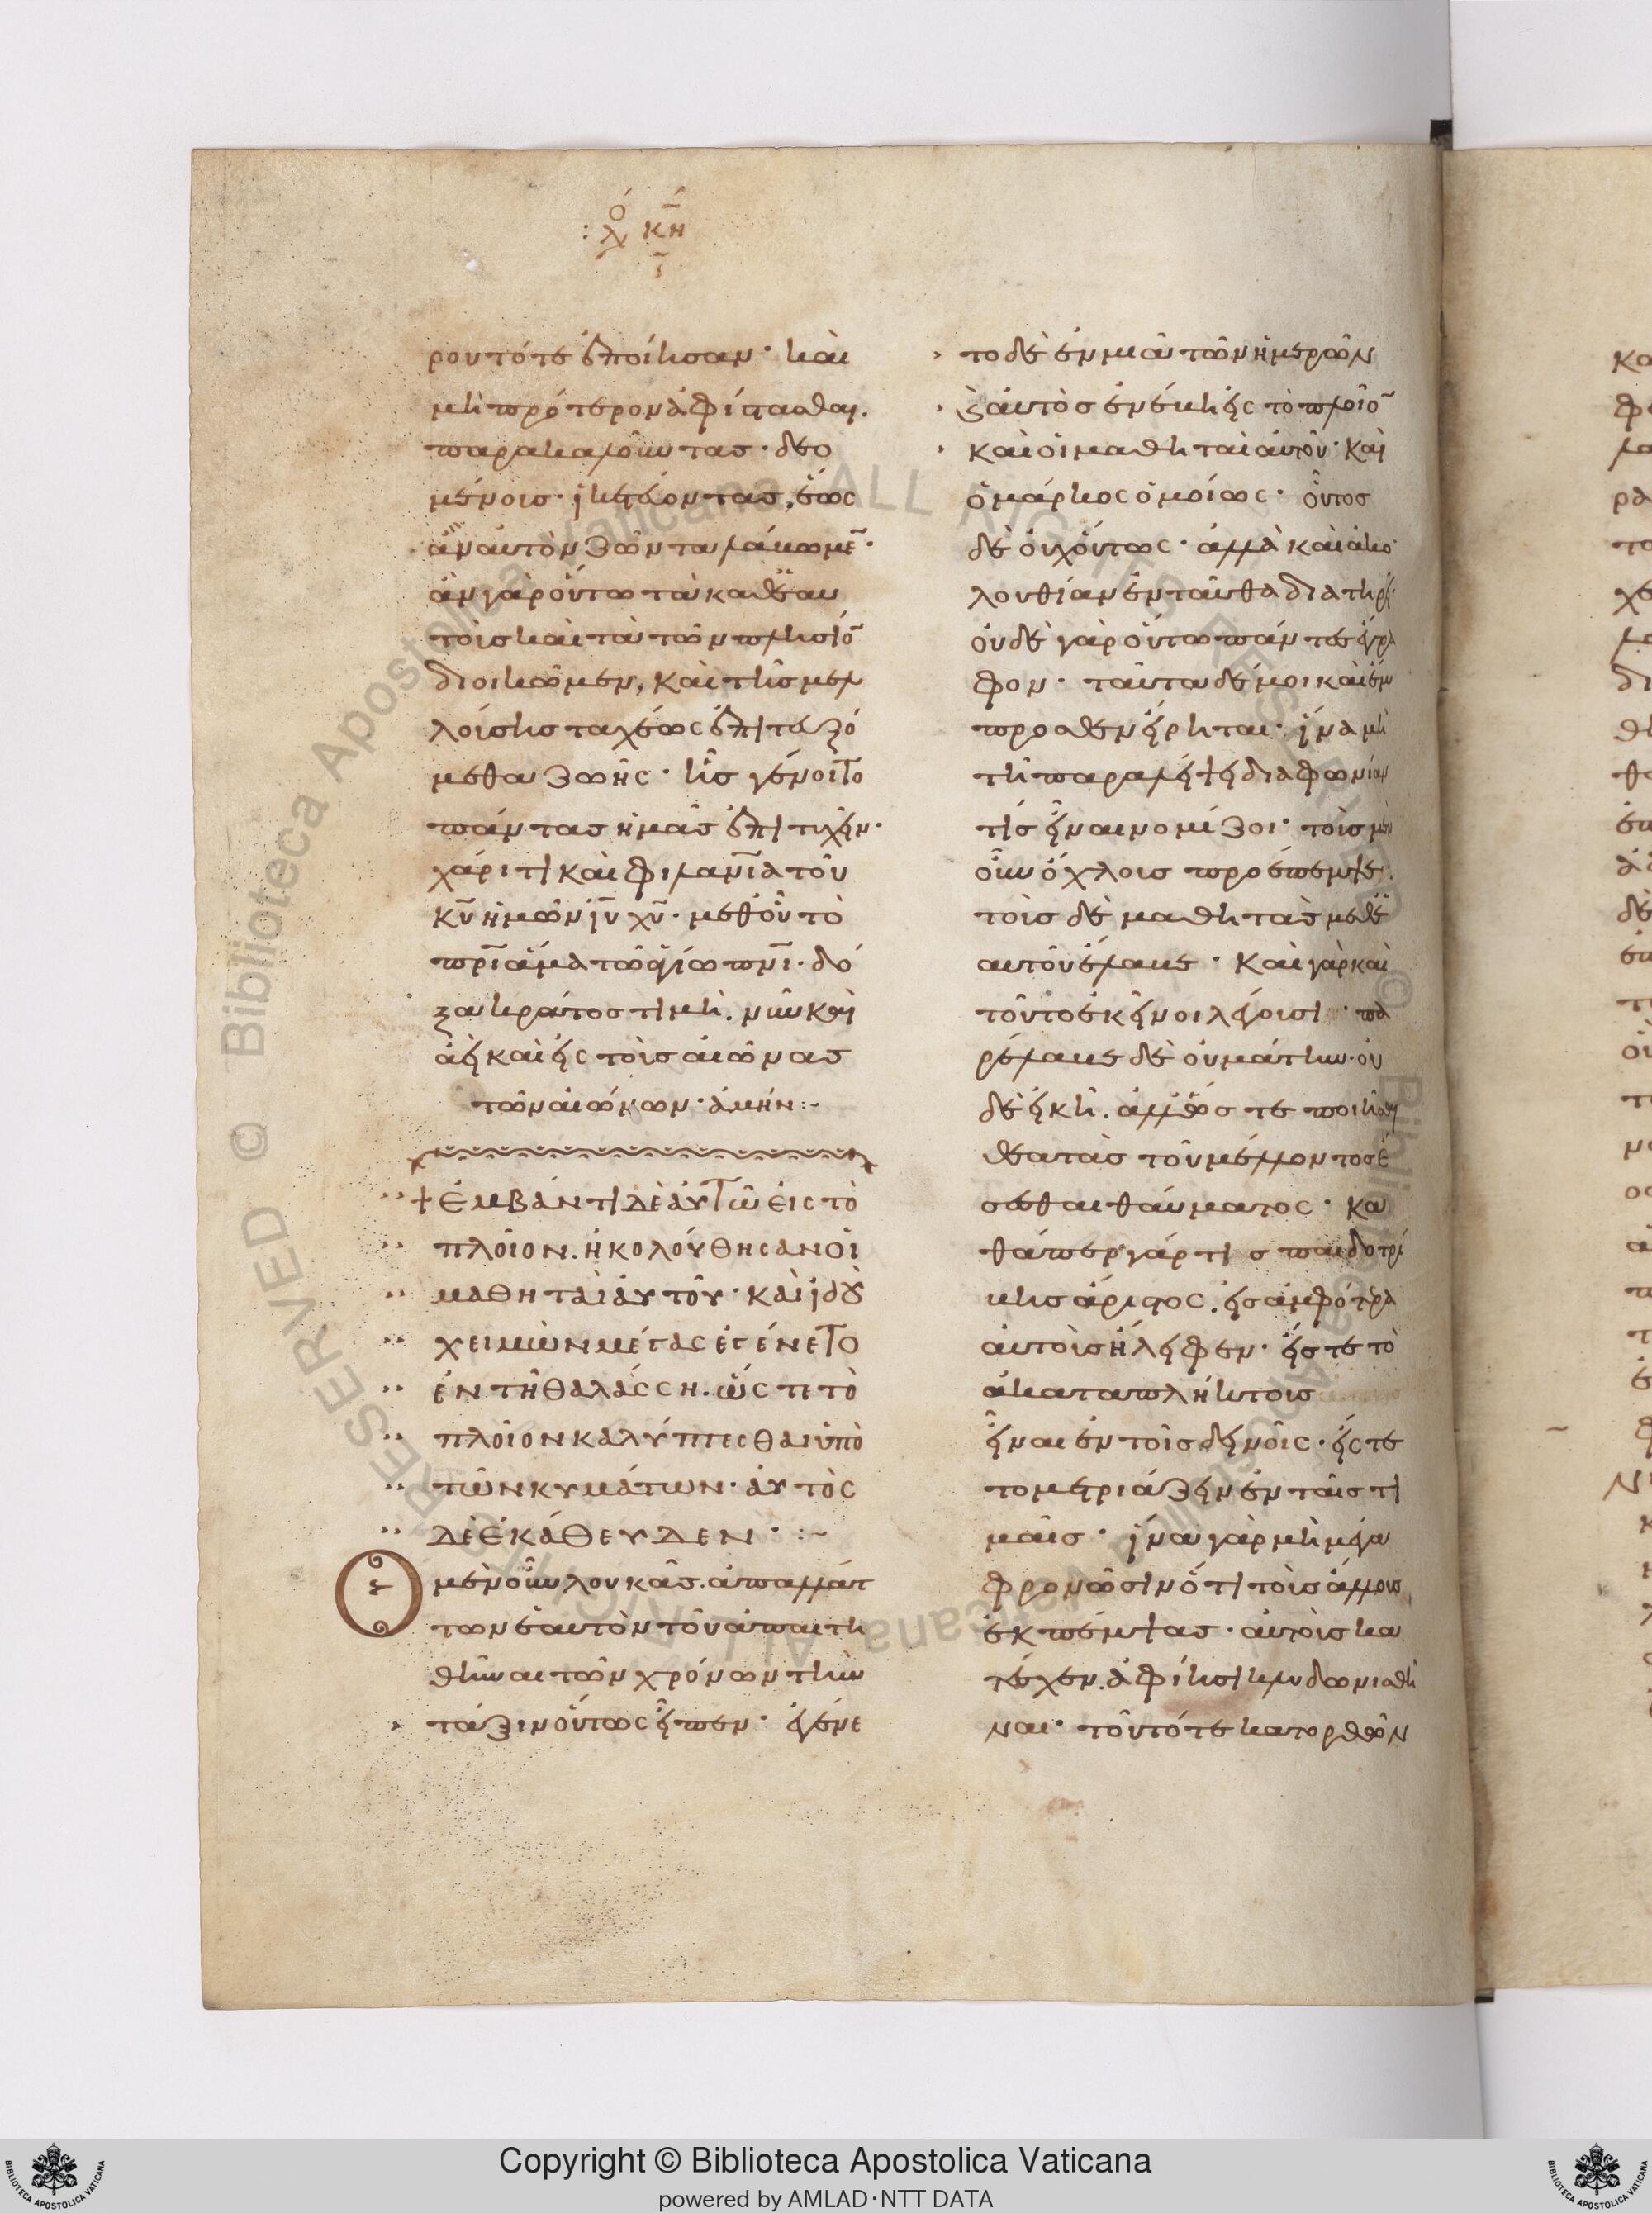 : ὁ λ κη
ρου τότε ἐποίησαν· καὶ
μὴ πρότερον ἀφίστασθαι.
παρακαλοῦντας· δεο
μένοις· ἱκετεύοντας, ἕως
ἂν αὐτὸν ζῶντα λάβωμε̅·
ἂν γὰρ οὕτω τὰ καθ' ἑαυ
τοὺς καὶ τὰ τῶν πλησίο̅
διοικῶμεν, καὶ τῆς μελ
λούσης ταχέως ἐπιτευξό
μεθα ζωῆς· ἧς γένοιτο
πάντας ἡμᾶς ἐπιτυχεῖν·
χάριτι καὶ φιλανι̅α τοῦ
κυ̅ ἡμῶν ιυ̅ χυ̅· μεθ' οὗ τὸ
πρι̅ ἅμα τῶ ἁγίω πνι̅· δό
ξα κράτος τιμὴ. νῦν καὶ
ἀεὶ καὶ εἰς τοὺς αἰῶνας
τῶν αἰώνων· ἀμήν:~
+ Ἐμβάντι δὲ αὐτῶ εἰς τὸ
πλοῖον. ἠκολούθησαν οἱ
μαθηταὶ αὐτοῦ· καὶ ἰδοὺ
χειμὼν μέγας ἐγένετο
ἐν τῆ θαλάσση. ὥς τε τὸ
πλοῖον καλύπτεσθαι ὑπὸ
τῶν κυμάτων· αὐτὸς
δὲ ἐκάθευδεν· :~
Ὁ μὲν οὖν λουκᾶς. ἀπαλλάτ
των ἑαυτὸν τοῦ ἀπαιτη
θῆναι τῶν χρόνων τὴν
τάξιν οὕτως εἶπεν· ἐγένε
το δὲ ἐν μιᾶ τῶν ἡμερῶν
καὶ αὐτὸς ἐνέβη εἰς τὸ πλοῖο̅
καὶ οἱ μαθηταὶ αὐτοῦ· καὶ
ὁ μάρκος ὁμοίως· οὗτος
δὲ οὐχ οὕτως· ἀλλὰ καὶ ἀκο
λουθίαν ἐνταῦθα διατηρεῖ·
οὐδὲ γὰρ οὕτω πάντες ἔγρα
φον· ταῦτα δέ μοι καὶ ἔμ
προσθεν εἴρηται· ἵνα μὴ
τῆ παραλείψει διαφωνίαν
τίς εἶναι νομίζοι· τοὺς μὲν
οὖν ὄχλους προέπεμψε·
τοὺς δὲ μαθητὰς μεθ' ἑ
αυτοῦ ἔλαβε· Καὶ γὰρ καὶ
τοῦτο ἐκεῖνοι λέγουσι· πα
ρέλαβε δὲ οὐ μάτην· οὐ
δὲ εἰκῆ. ἀλλ' ὥστε ποιῆσαι
θεατὰς τοῦ μέλλοντος ἔ
σεσθαι θαύματος· κα
θάπερ γάρ τις παιδοτρί
βης ἄριστος. εἰς ἀμφότερα
αὐτοὺς ἤλειφεν· εἴς τε τὸ
ἀκαταπλήκτους
εἶναι ἐν τοῖς δεινοῖς· εἴς τε
το μετριάζειν ἐν ταῖς τι
μαῖς· ἵνα γὰρ μὴ μέγα
φρονῶσιν ὅτι τοὺς ἄλλους
ἐκπέμψας· αὐτοὺς κα
τέσχεν. ἀφίησι κλυδωνισθῆ
ναι· τοῦτό τε κατορθῶν
Copyright © Biblioteca Apostolica Vaticana
powered by AMLAD·NTT DATA